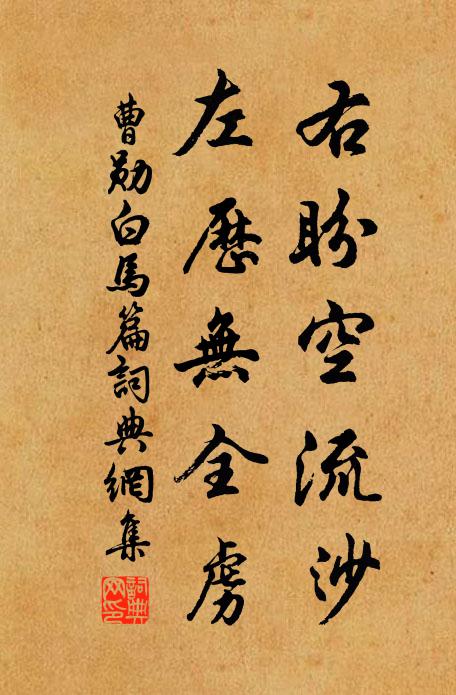 右盼空流沙
左歷無全虜
曹勛白馬篇詞典網集
詞典網印